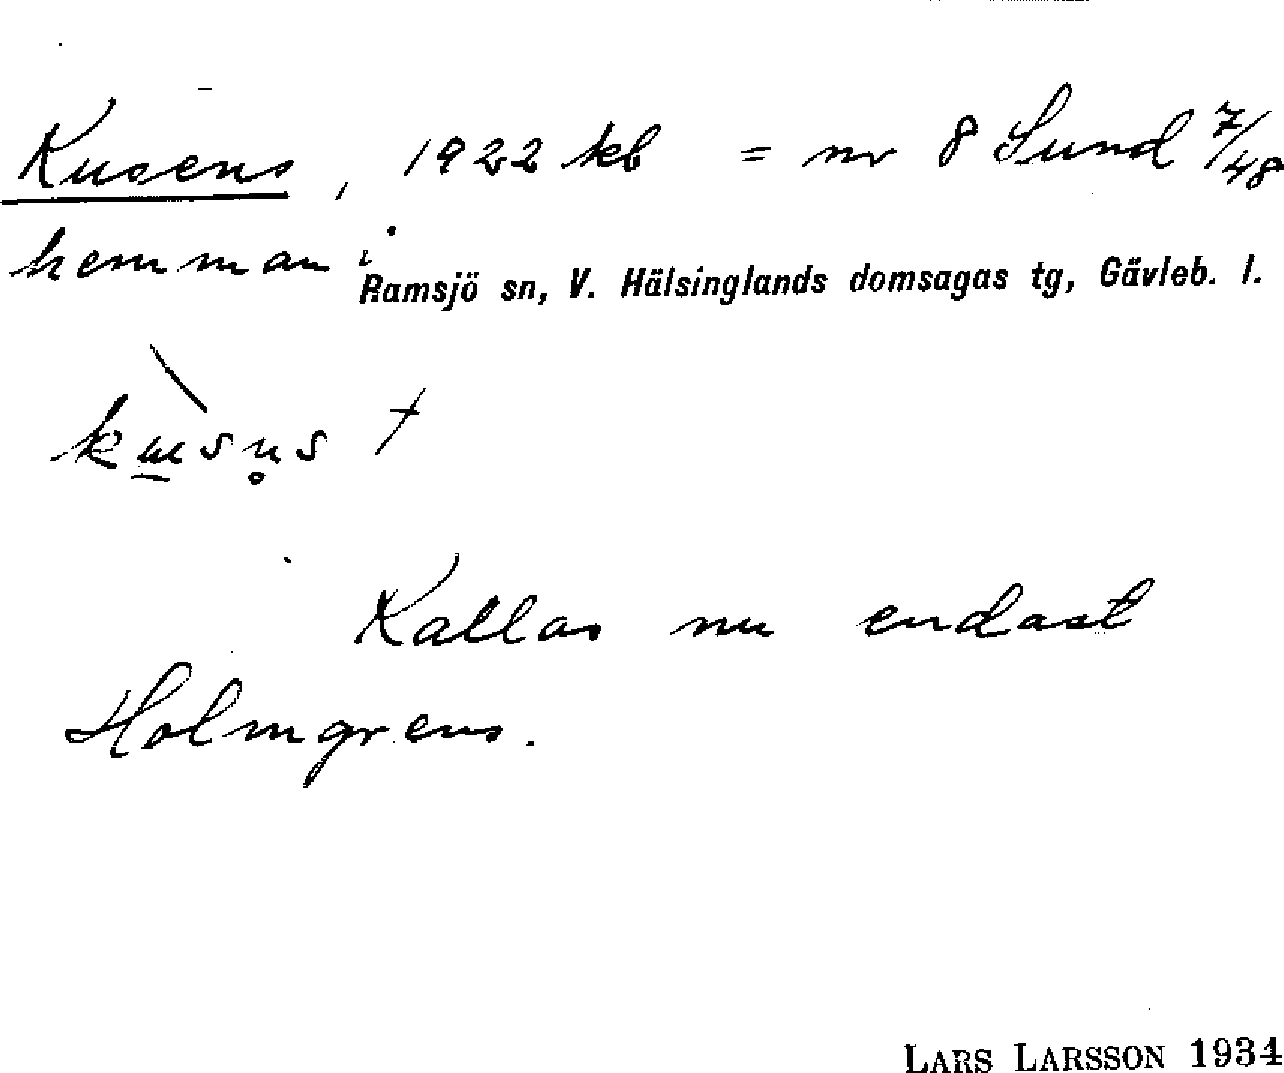 Kusens, 1922 kb = nr 8 Sund 7/48
hemman i
Ramsjö sn, V. Hälsinglands domsagas tg, Gävleb. l.
kɯ̱̀sn̥s †
Kallas nu endast
Holmgrens.
LARS LARSSON 1934